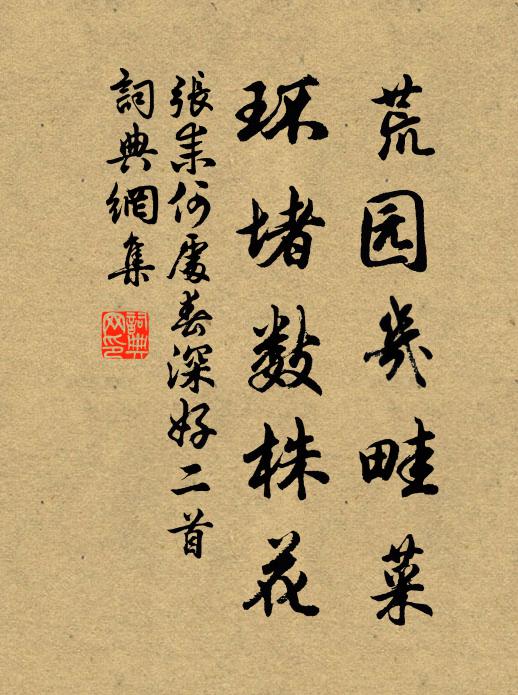 荒园几畦菜
环堵数株花
張耒何處春深好二首
詞典網集
詞典網印